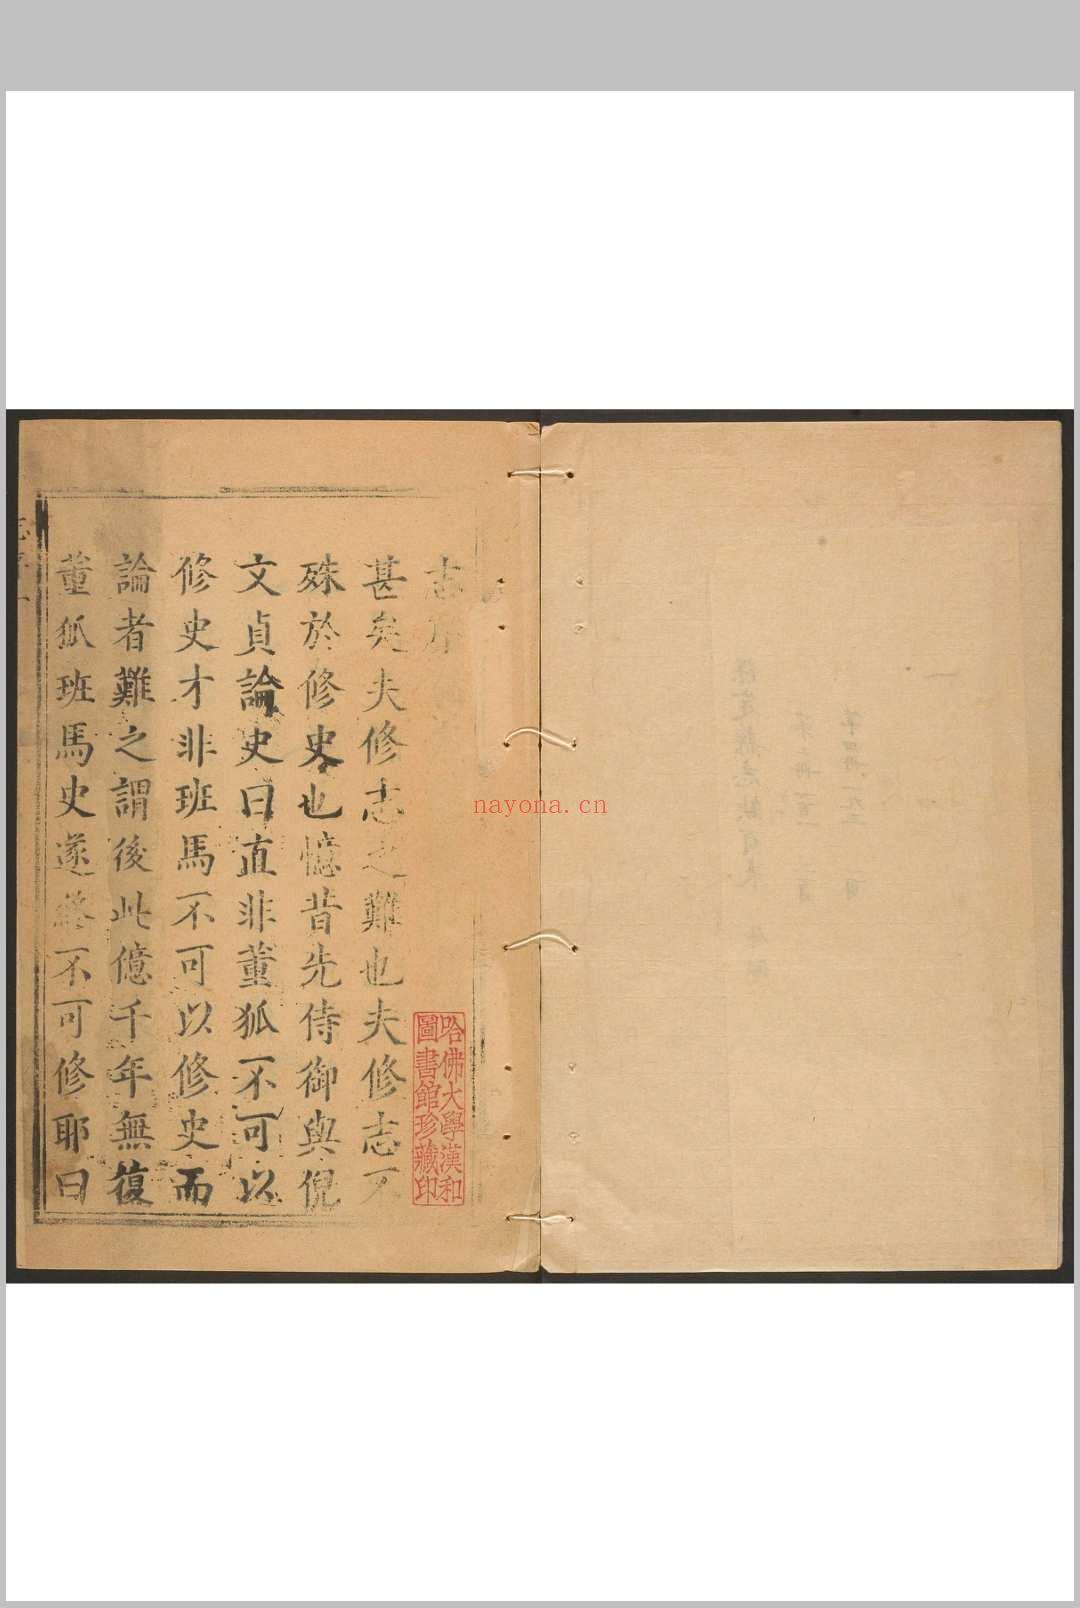 志序
甚矣夫修志之難也夫修志不
殊於修史也憶昔先侍御與倪
文貞論史曰直非董狐不可以
修史才非班馬不可以修史而
論者難之謂後此億千年無復
董狐班馬史遂終不可修耶曰
哈佛大學漢和
圖書館珍藏印
nayona.cn